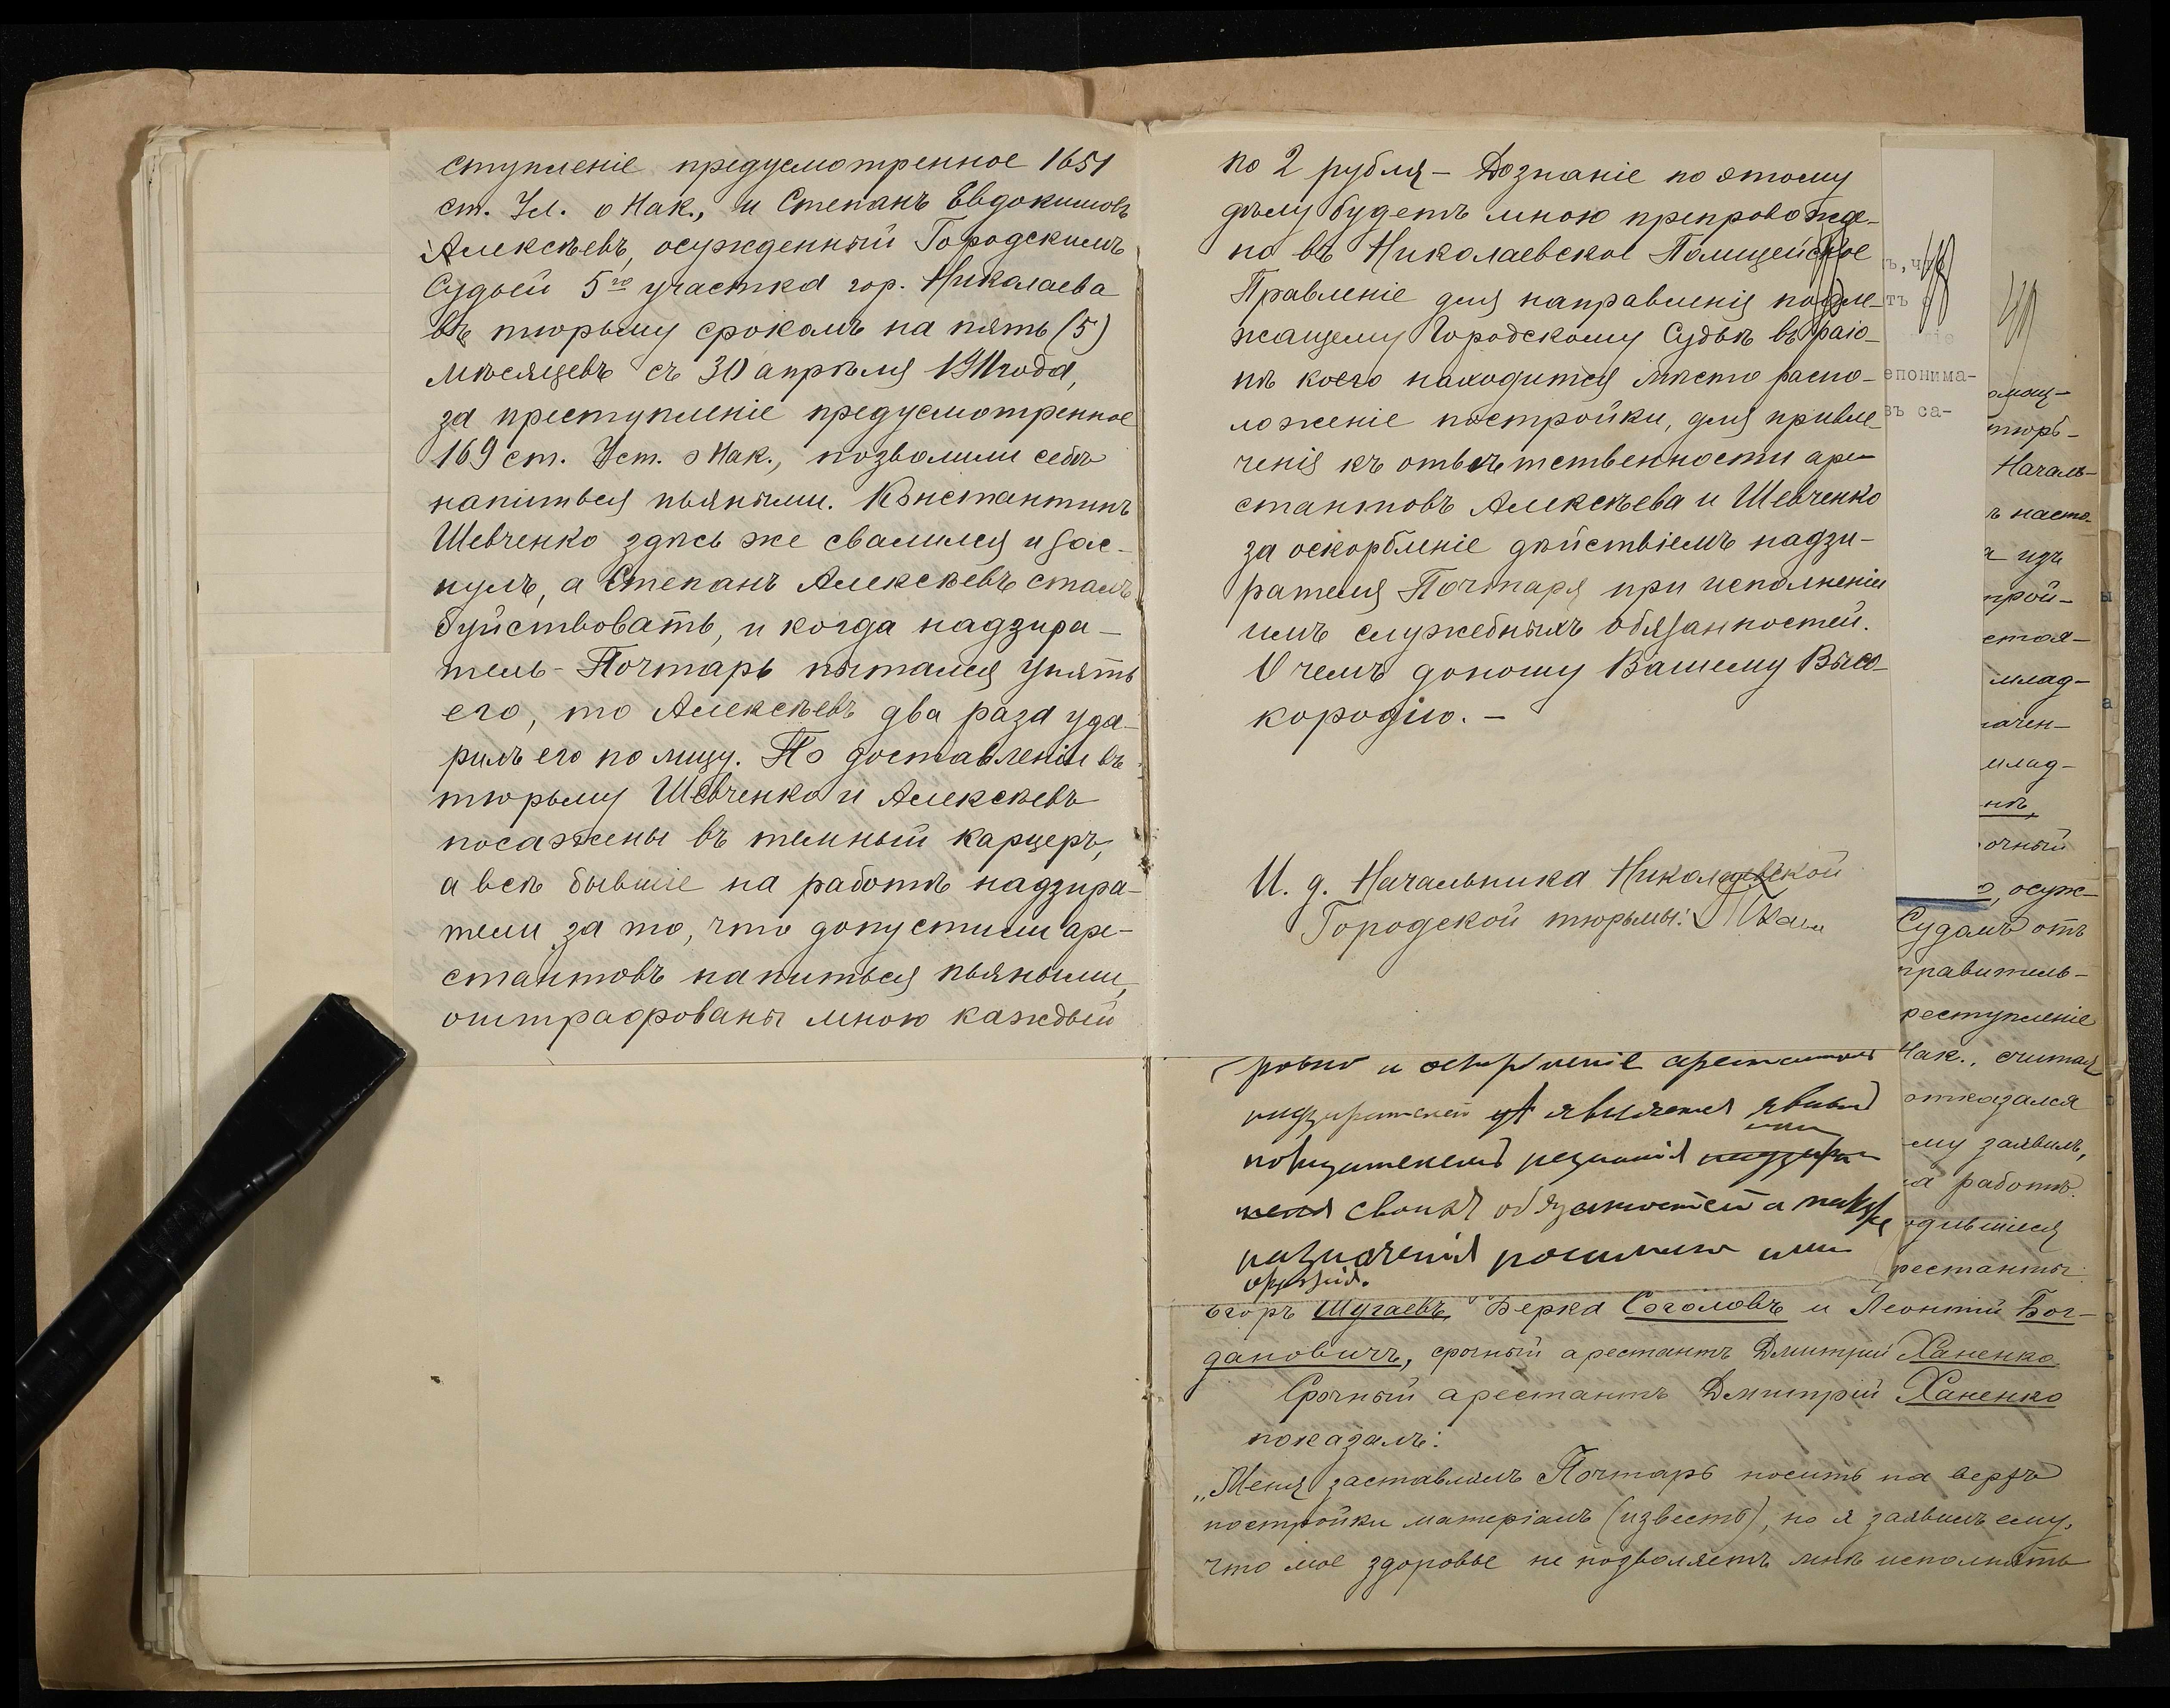 ступленіе предусмотренное 1651
ст. Ул. о Нак., и Степанъ Евдокимовъ
Алексѣевъ, осужденный Городскимъ
Судьей 5го участка гор. Николаева
въ тюрьму срокомъ на пять (5)
мѣсяцевъ съ 30 апрѣля 1911 года,
за преступленіе предусмотренное
169 ст. Уст. о Нак., позволили себѣ
напиться пьяными. Константинъ
Шевченко здѣсь же свалился и зас-
нулъ, а Степанъ Алексѣевъ сталъ
буйствовать, и когда надзира-
тель Почтарь пытался унять
его, то Алексѣевъ два раза уда-
рилъ его по лицу. По доставленіи въ
тюрьму Шевченко и Алексѣевъ
посажены въ темный карцеръ,
а всѣ бывшіе на работѣ надзира-
тели за то, что допустили аре-
стантовъ напиться пьяными,
оштрафованы мною каждый
по 2 рубля – Дознаніе по этому
дѣлу будетъ мною препровожде-
но въ Николаевское Полицейское
Правленіе для направленія подле-
жащему Городскому Судьѣ въ раіо-
нѣ коего находится мѣсто распо-
ложеніе постройки, для привле-
ченія къ отвѣтственности аре-
стантовъ Алексѣева и Шевченко
за оскорбленіе дѣйствіемъ надзи-
рателя Почтаря при исполненіи
имъ служебныхъ обязанностей.
О чемъ доношу Вашему Высо-
кородію. –
И. д. Начальника Николаевской
Городской тюрьмы:
ъ, что
тъ
епонима-
въ са-
тюрь-
Началь-
ъ насто-
изъ
трой-
стоя-
млад-
ачен-
млад-
нѣ,
очный
о, осуж-
Судомъ отъ
правитель-
реступленіе
Нак., считая
отказался
ему заявилъ,
на работѣ.
одившіеся
рестанты
ровно и арестантовъ
является
своихъ обязанностей а также
назначенія
оружія.
Егоръ Шугаевъ, Берка Соголовъ и Леонтій Бог-
дановичъ, срочный арестантъ Дмитрий Ханенко
Срочный арестантъ Дмитрій Ханенко
показалъ:
„Меня заставлялъ Почтарь носить на верхъ
постройки матеріалъ (известь), но я заявилъ ему,
что мое здоровье не позволяетъ мнѣ исполнять